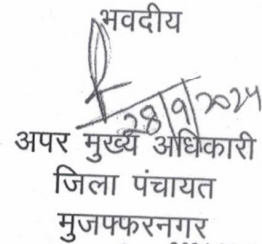 भवदीय
28/9/2024
अपर मुख्य अधिकारी
जिला पंचायत
मुजफ्फरनगर